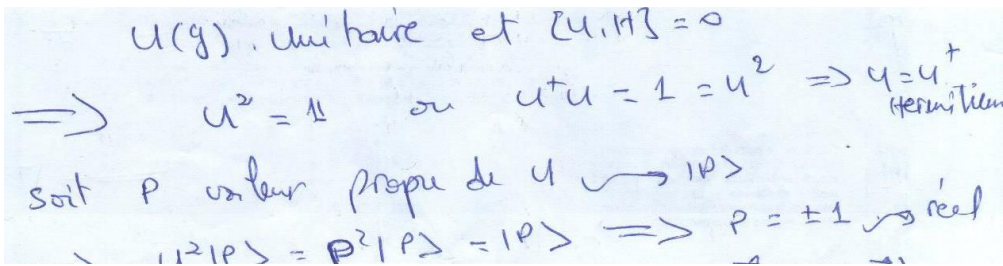 U(g). Unitaire et [U,H] = 0
=> U² = 1 or U⁺U = 1 = U² => U = U⁺
Hermitien
soit P valeur propre de U ⟿ |P>
U²|P> = P²|P> = |P> => P = ±1 ⟿ réel